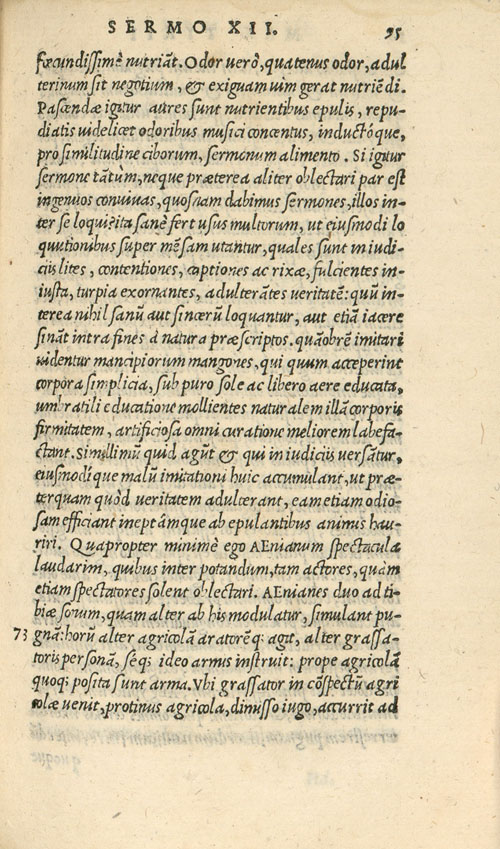 SERMO XII. 95
fœcundissimè nutriāt. Odor verò, quatenus odor, adul
terinum sit negotium, & exiguam uim gerat nutriēdi.
Pascendæ igitur aures sunt nutrientibus epulis, repu-
diatis uidelicet odoribus musici concentus, inductóque,
pro similitudine ciborum, sermonum alimento. Si igitur
sermone tātum, neque præterea aliter oblectari par est
ingenuos conuiuas, quosnam dabimus sermones, illos in-
ter se loqui? ita sanè fert usus multorum, ut eiusmodi lo
quutionibus super mēsam utantur, quales sunt in iudi-
ciis lites, contentiones, captiones ac rixæ, fulcientes in-
iusta, turpia exornantes, adulterātes veritatē: quū in-
terea nihil sanū aut sincerū loquantur, aut etiā iacere
sināt intra fines à natura præscriptos. quāobrē imitari
uidentur mancipiorum mangones, qui quum acceperint
corpora simplicia, sub puro sole ac libero aere educata,
umbratili educatione mollientes naturalem illā corporis
firmitatem, artificiosa omni curatione meliorem labefa-
ctant. Simillimū quid agūt & qui in iudiciis versātur,
eiusmodíque malū imitationi huic accumulant, ut præ-
terquam quòd veritatem adulterant, eam etiam odio-
sam efficiant ineptámque ab epulantibus animis hau-
riri. Quapropter minimè ego AEnianum spectacula
laudarim, quibus inter potandum, tam actores, quàm
etiam spectatores solent oblectari. AEnianes duo ad ti-
biæ sonum, quam alter ab his modulatur, simulant pu-
73 gnā: horū alter agricolā aratorēq; agit, alter grassa-
toris personā, sēq; ideo armis instruit: prope agricolā
quoq; posita sunt arma. Vbi grassator in cōspectū agri
colæ uenit, protinus agricola, dimisso iugo, accurrit ad
quoque